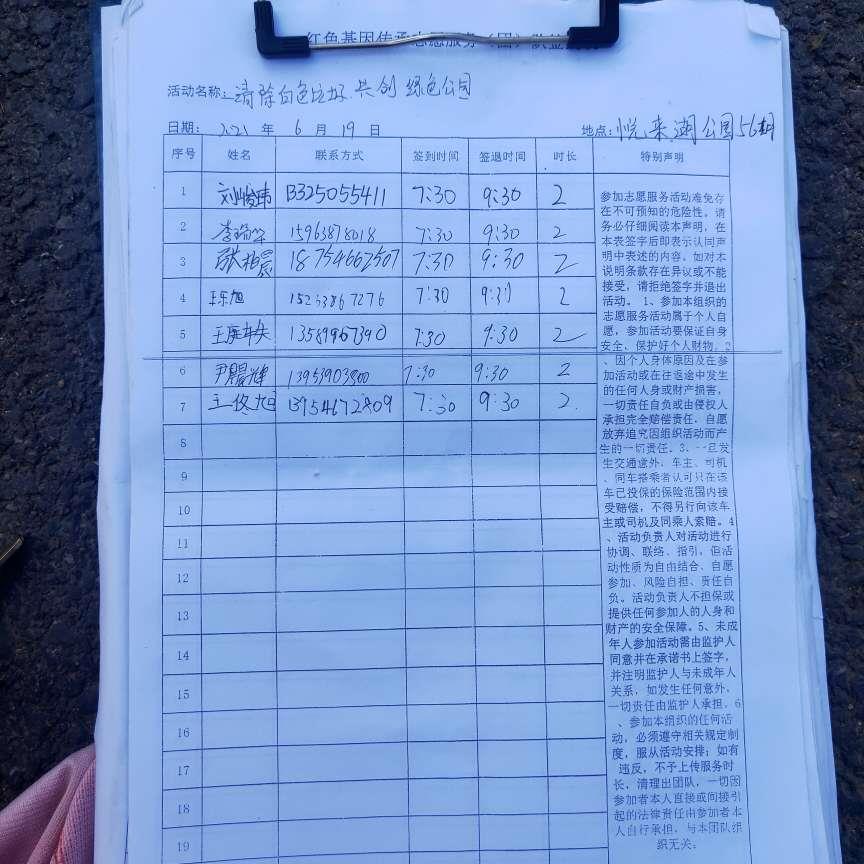 红色基因传承志愿服务(团)队签
活动名称: 清除白色垃圾 共创 绿色公园
日期: 2021 年 6 月 19 日 地点: 悦来湖公园56期
序号 姓名 联系方式 签到时间 签退时间 时长 特别声明
1 刘俊玮 13325055411 7:30 9:30 2
2 李瑞华 15963878018 7:30 9:30 2
3 张柏晨 18754662507 7:30 9:30 2
4 王东旭 15233867276 7:30 9:30 2
5 13589967390 7:30 9:30 2
6 尹晨辉 13953903800 7:30 9:30 2
7 王俊旭 13954672809 7:30 9:30 2.
8
9
10
11
12
13
14
15
16
17
18
19
参加志愿服务活动难免存
在不可预知的危险性, 请
务必仔细阅读本声明, 在
本表签字后即表示认同声
明中表述的内容, 如对本
说明条款存在异议或不能
接受, 请拒绝签字并退出
活动。 1、参加本组织的
志愿服务活动属于个人自
愿, 参加活动要保证自身
安全、保护好个人财物。2
、因个人身体原因及在参
加活动或在往返途中发生
的任何人身或财产损害,
一切责任自负或由侵权人
承担完全赔偿责任, 自愿
放弃追究因组织活动而产
生的一切责任。3、一旦发
生交通意外, 车主、司机
、同车搭乘者认可只在该
车已投保的保险范围内接
受赔偿, 不得另行向该车
主或司机及同乘人索赔。4
、活动负责人对活动进行
协调、联络、指引, 但活
动性质为自由结合、自愿
参加、风险自担、责任自
负。活动负责人不担保或
提供任何参加人的人身和
财产的安全保障。5、未成
年人参加活动需由监护人
同意并在承诺书上签字,
并注明监护人与未成年人
关系, 如发生任何意外,
一切责任由监护人承担。6
、参加本组织的任何活
动, 必须遵守相关规定制
度, 服从活动安排; 如有
违反, 不予上传服务时
长, 清理出团队, 一切因
参加者本人直接或间接引
起的法律责任由参加者本
人自行承担, 与本团队组
织无关。